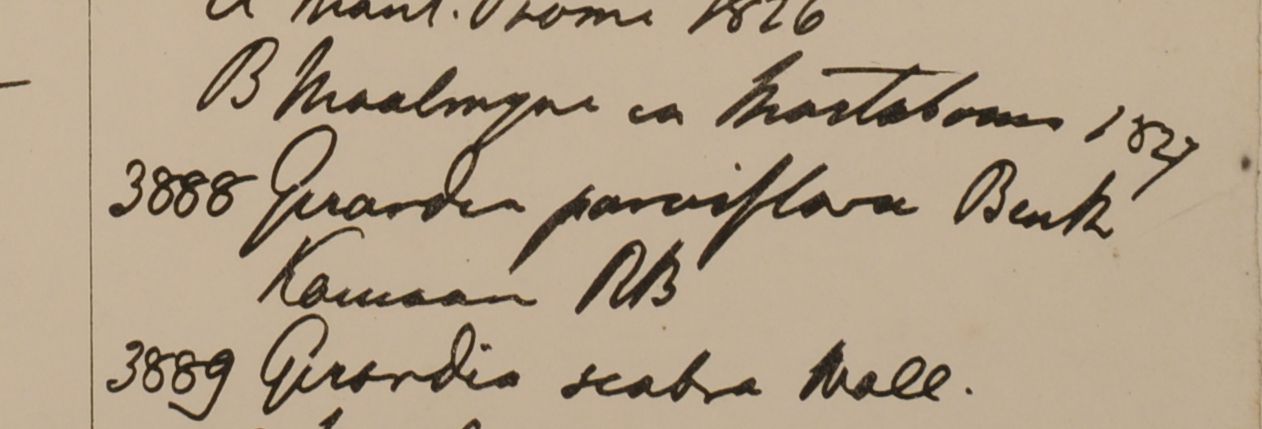 A Mont. Prome 1826
B Moalmyne in Martabania 1827
3888 Gerardia parviflora Benth
Kamaon RB
3889 Gerardia scabra Wall.